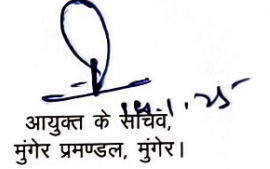 14.1.25
आयुक्त के सचिव,
मुंगेर प्रमण्डल, मुंगेर।